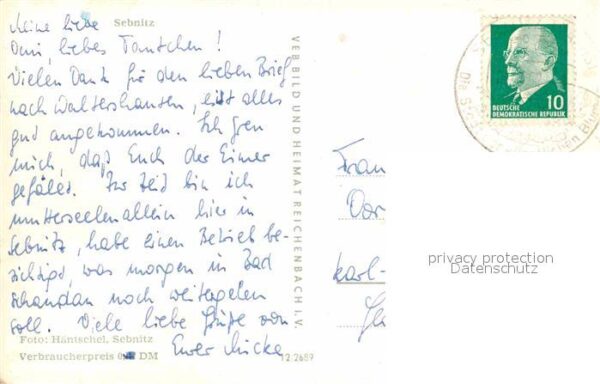 Sebnitz
Meine liebe
Omi, liebes Tantchen!
Vielen Dank für den lieben Brief
nach Waltershausen, ist alles
gut angekommen. Ich freu
mich, daß Euch der Eimer
gefällt. Zur Zeit bin ich
mutterseelenallein hier in
Sebnitz, habe einen Betrieb be-
sichtigt, was morgen in Bad
Schandau noch weitergehen
soll. Viele liebe Grüße von
Eurer
Foto: Häntschel, Sebnitz
Verbraucherpreis DM
12 2689
VEB BILD UND HEIMAT REICHENBACH I. V.
DEUTSCHE
DEMOKRATISCHE REPUBLIK
10
Frau
Karl-
privacy protection
Datenschutz